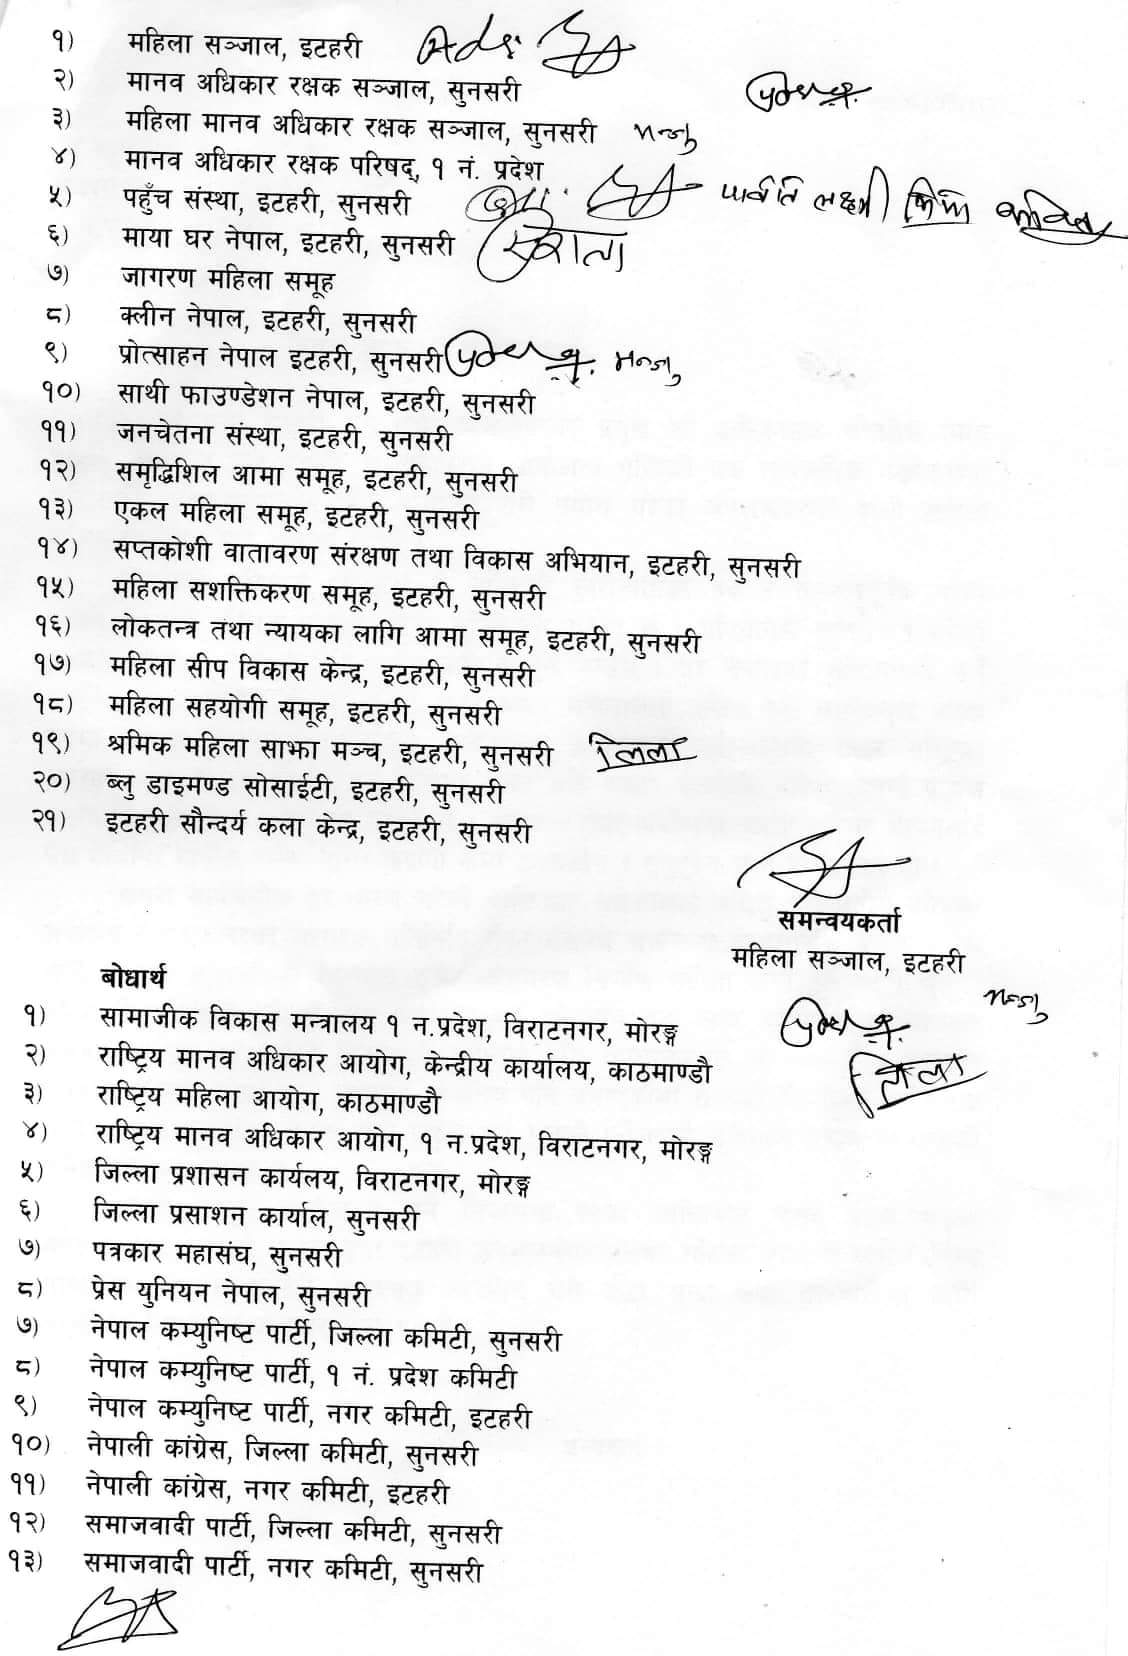 १) महिला सञ्जाल, इटहरी
२) मानव अधिकार रक्षक सञ्जाल, सुनसरी
३) महिला मानव अधिकार रक्षक सञ्जाल, सुनसरी मन्जु
४) मानव अधिकार रक्षक परिषद्, १ नं. प्रदेश
५) पहुँच संस्था, इटहरी, सुनसरी पार्वती लक्ष्मी
६) माया घर नेपाल, इटहरी, सुनसरी
७) जागरण महिला समूह
८) क्लीन नेपाल, इटहरी, सुनसरी
९) प्रोत्साहन नेपाल इटहरी, सुनसरी मन्जु
१०) साथी फाउण्डेशन नेपाल, इटहरी, सुनसरी
११) जनचेतना संस्था, इटहरी, सुनसरी
१२) समृद्धिशिल आमा समूह, इटहरी, सुनसरी
१३) एकल महिला समूह, इटहरी, सुनसरी
१४) सप्तकोशी वातावरण संरक्षण तथा विकास अभियान, इटहरी, सुनसरी
१५) महिला सशक्तिकरण समूह, इटहरी, सुनसरी
१६) लोकतन्त्र तथा न्यायका लागि आमा समूह, इटहरी, सुनसरी
१७) महिला सीप विकास केन्द्र, इटहरी, सुनसरी
१८) महिला सहयोगी समूह, इटहरी, सुनसरी
१९) श्रमिक महिला साझा मञ्च, इटहरी, सुनसरी लिला
२०) ब्लु डाइमण्ड सोसाईटी, इटहरी, सुनसरी
२१) इटहरी सौन्दर्य कला केन्द्र, इटहरी, सुनसरी
समन्वयकर्ता
महिला सञ्जाल, इटहरी
मन्जु
बोधार्थ
१) सामाजीक विकास मन्त्रालय १ न.प्रदेश, विराटनगर, मोरङ्ग
२) राष्ट्रिय मानव अधिकार आयोग, केन्द्रीय कार्यालय, काठमाण्डौ
३) राष्ट्रिय महिला आयोग, काठमाण्डौ
४) राष्ट्रिय मानव अधिकार आयोग, १ न.प्रदेश, विराटनगर, मोरङ्ग
५) जिल्ला प्रशासन कार्यलय, विराटनगर, मोरङ्ग
६) जिल्ला प्रसाशन कार्याल, सुनसरी
७) पत्रकार महासंघ, सुनसरी
८) प्रेस युनियन नेपाल, सुनसरी
७) नेपाल कम्युनिष्ट पार्टी, जिल्ला कमिटी, सुनसरी
८) नेपाल कम्युनिष्ट पार्टी, १ नं. प्रदेश कमिटी
९) नेपाल कम्युनिष्ट पार्टी, नगर कमिटी, इटहरी
१०) नेपाली कांग्रेस, जिल्ला कमिटी, सुनसरी
११) नेपाली कांग्रेस, नगर कमिटी, इटहरी
१२) समाजवादी पार्टी, जिल्ला कमिटी, सुनसरी
१३) समाजवादी पार्टी, नगर कमिटी, सुनसरी